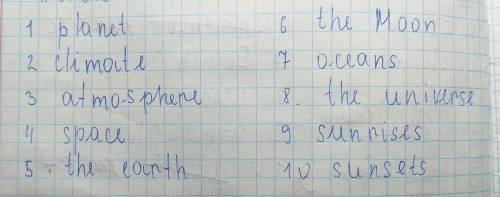 1 planet
2 climate
3 atmosphere
4 space
5 the earth
6 the Moon
7 oceans
8. the universe
9 sunrises
10 sunsets